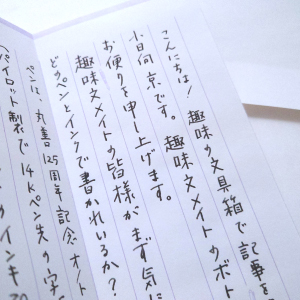 こんにちは！ 趣味の文具箱で記事を
小日向 京です。 趣味文メイトのボト
お便りを申し上げます。
趣味文メイトの皆様がまず気に
どうペンとインクで書かれているか？
ペンは、丸善125周年記念 オノト
(パイロット製で 14Kペン先の字